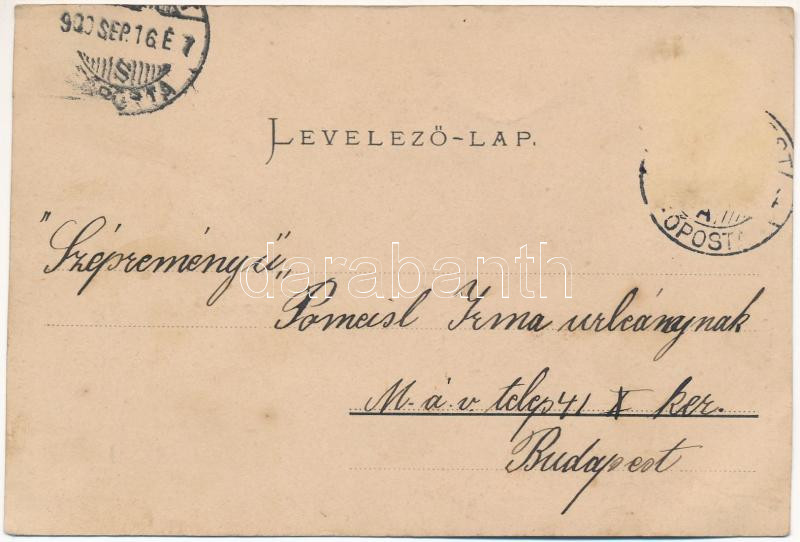 900 SEP. 16. É 7
S
POSTA
LEVELEZŐ-LAP.
ŐPOST
"Szépreményű"
Irma urleánynak
M.á.v. telep 41 X ker.
Budapest
darabanth